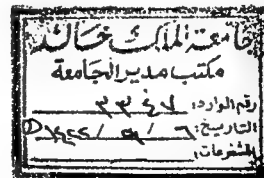 جامعة الملك خالد
مكتب مدير الجامعة
رقم الوارد: ٣٣٤٧
التاريخ: ٦ / /
المشفوعات: